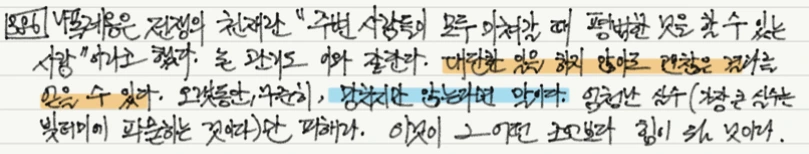 886 나폴레옹은 전쟁의 천재란 "주변 사람들이 모두 미쳐갈 때 평범한 것을 할 수 있는
사람"이라고 했다. 돈 관리도 이와 같다. 대단한 일을 하지 않아도 괜찮은 결과를
얻을 수 있다. 오랫동안, 꾸준히, 망치지만 않는다면 말이다. 엄청난 실수(가장 큰 실수는
빚더미에 파묻히는 것이다)만 피해라. 이것이 그 어떤 조언보다 힘이 센 것이다.